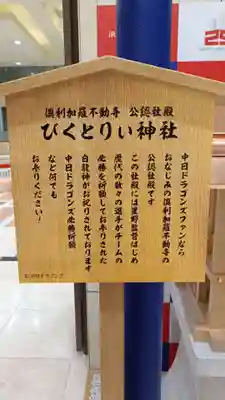 倶利伽羅不動寺 公認社殿
びくとりぃ神社
中日ドラゴンズファンなら
おなじみの倶利伽羅不動寺の
公認社殿です
この社殿には星野監督はじめ
歴代の数々の選手がチームの
必勝を祈願してお参りされた
白龍神がお祀りされております
中日ドラゴンズ必勝祈願
など何でも
お参りください!